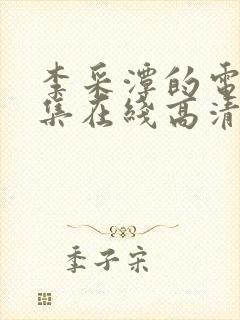 李采潭的電
集在綫高清
季子宋